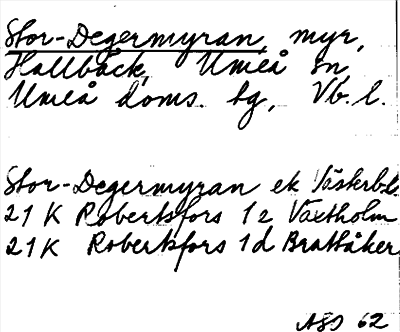 Stor-Degermyran, myr,
Hallbäck, Umeå sn
Umeå doms. tg, Vb. l.
Stor-Degermyran ek Västerb.
21 K Robertsfors 1 e Växtholm
21 K Robertsfors 1 d Brattåker
ASD 62